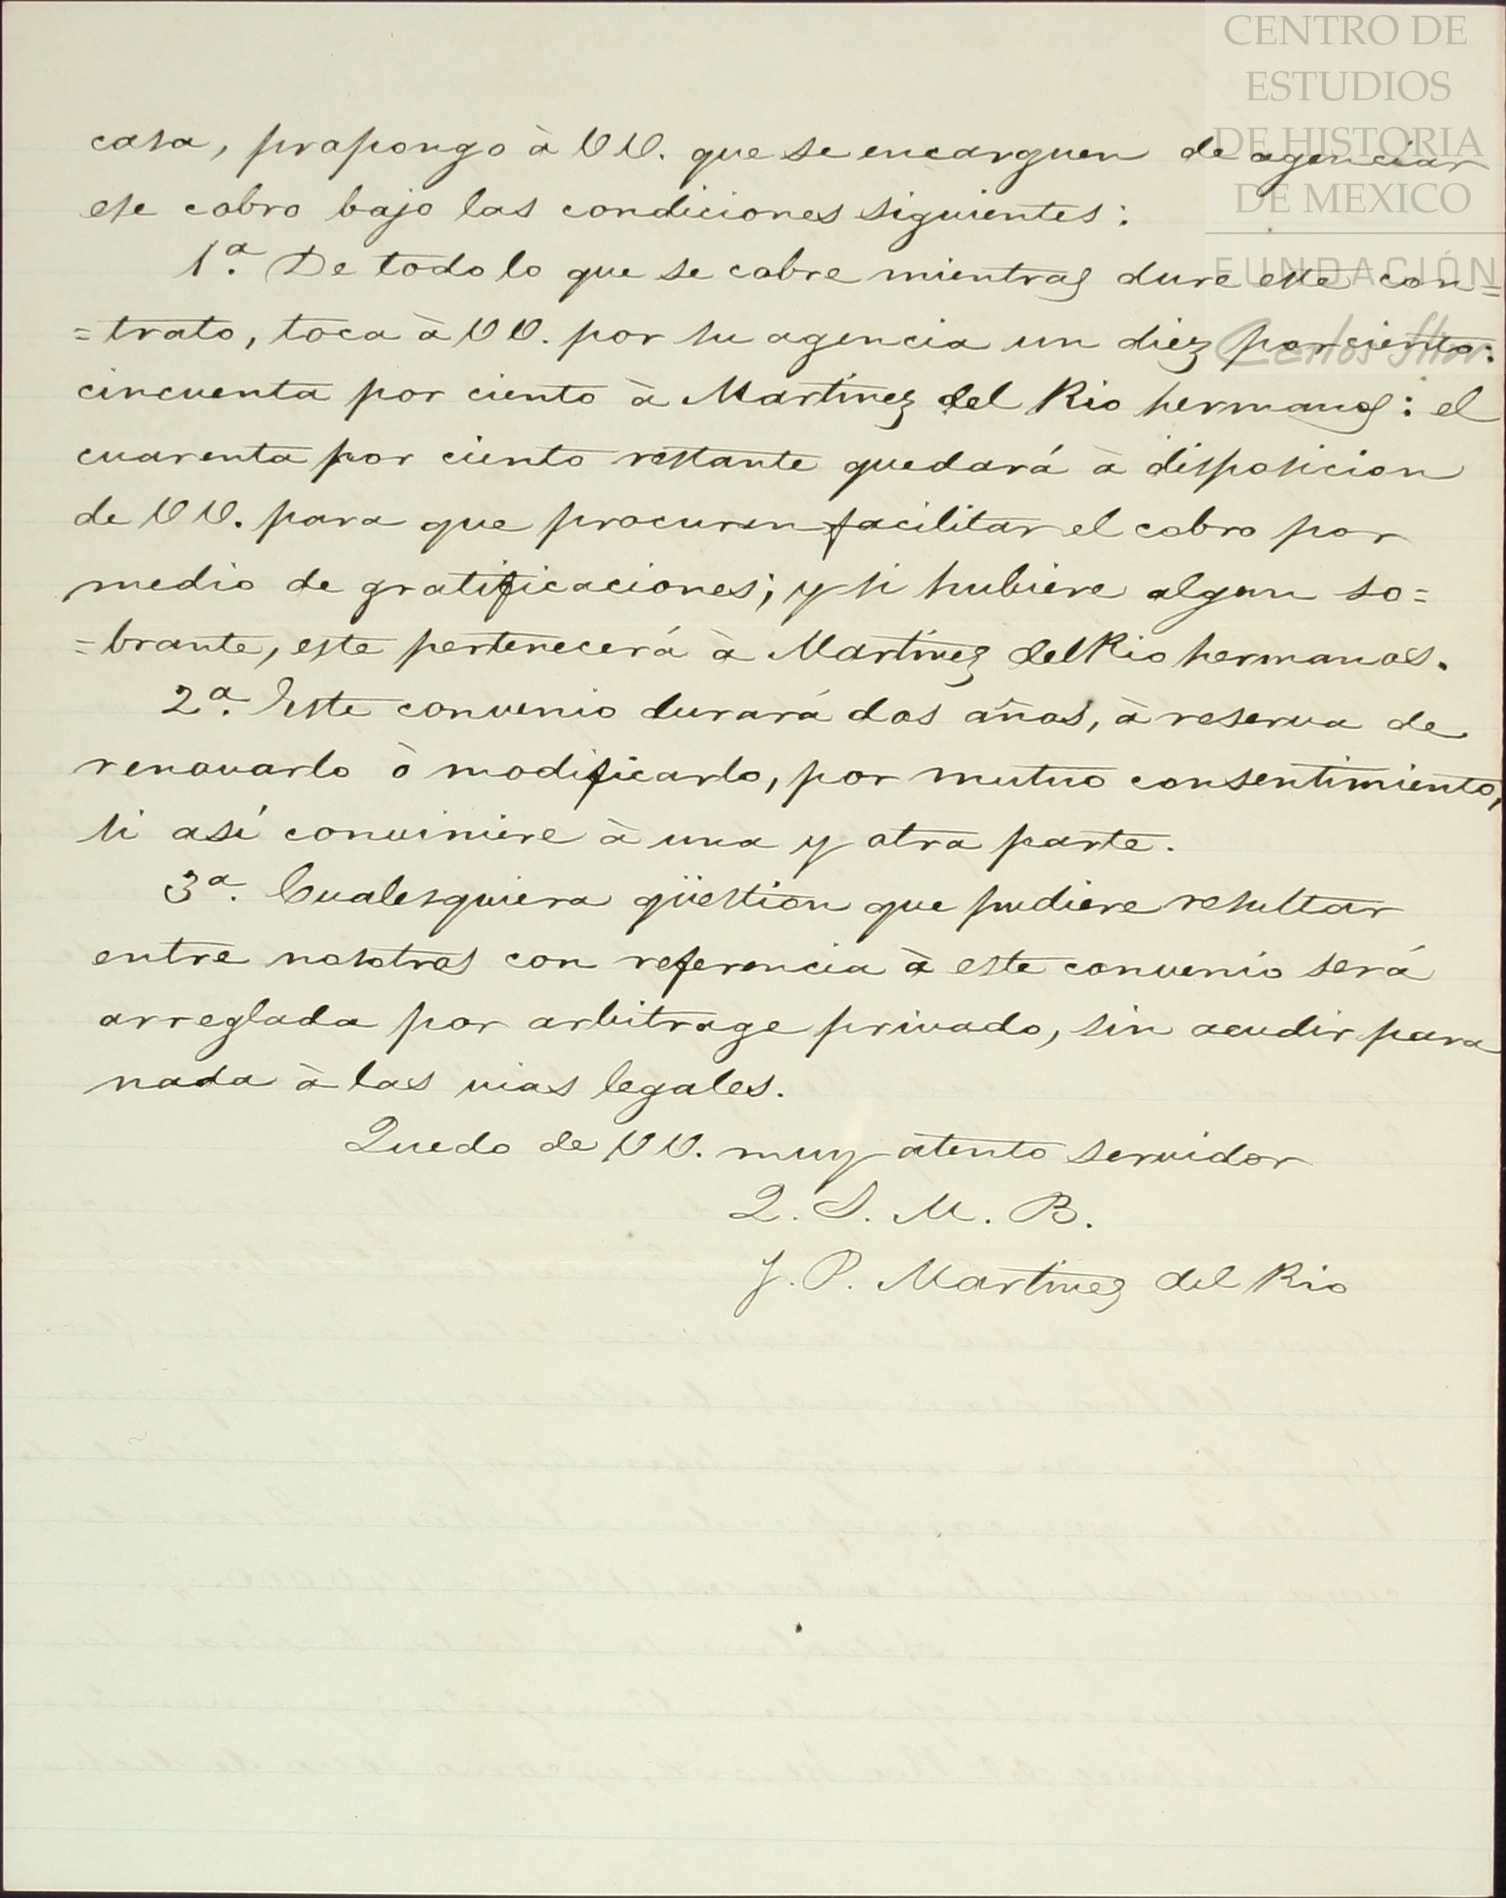 CENTRO DE
ESTUDIOS
DE HISTORIA
DE MEXICO
FUNDACIÓN
Carlos Slim
casa, propongo à VV. que se encarguen de agenciar
ese cobro bajo las condiciones siguientes:
1ª. De todo lo que se cobre mientras dure este con=
=trato, toca à VV. por su agencia un diez por ciento:
cincuenta por ciento à Martinez del Rio hermanos: el
cuarenta por ciento restante quedará à disposicion
de VV. para que procuren facilitar el cobro por
medio de gratificaciones; y si hubiere algun so=
=brante, este pertenecerá à Martinez del Rio hermanos.
2ª. Este convenio durará dos años, à reserva de
renovarlo ò modificarlo, por mutuo consentimiento,
si así conviniere à una y otra parte.
3ª. Cualesquiera qüestion que pudiere resultar
entre nosotros con referencia à este convenio será
arreglada por arbitrage privado, sin acudir para
nada à las vias legales.
Quedo de VV. muy atento servidor
Q. S. M. B.
J. P. Martinez del Rio